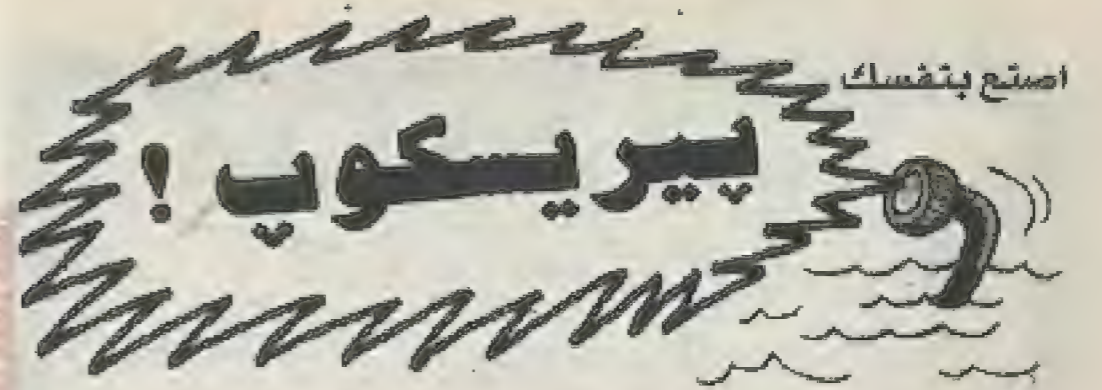 اصنع بنفسك
پيريسكوپ !